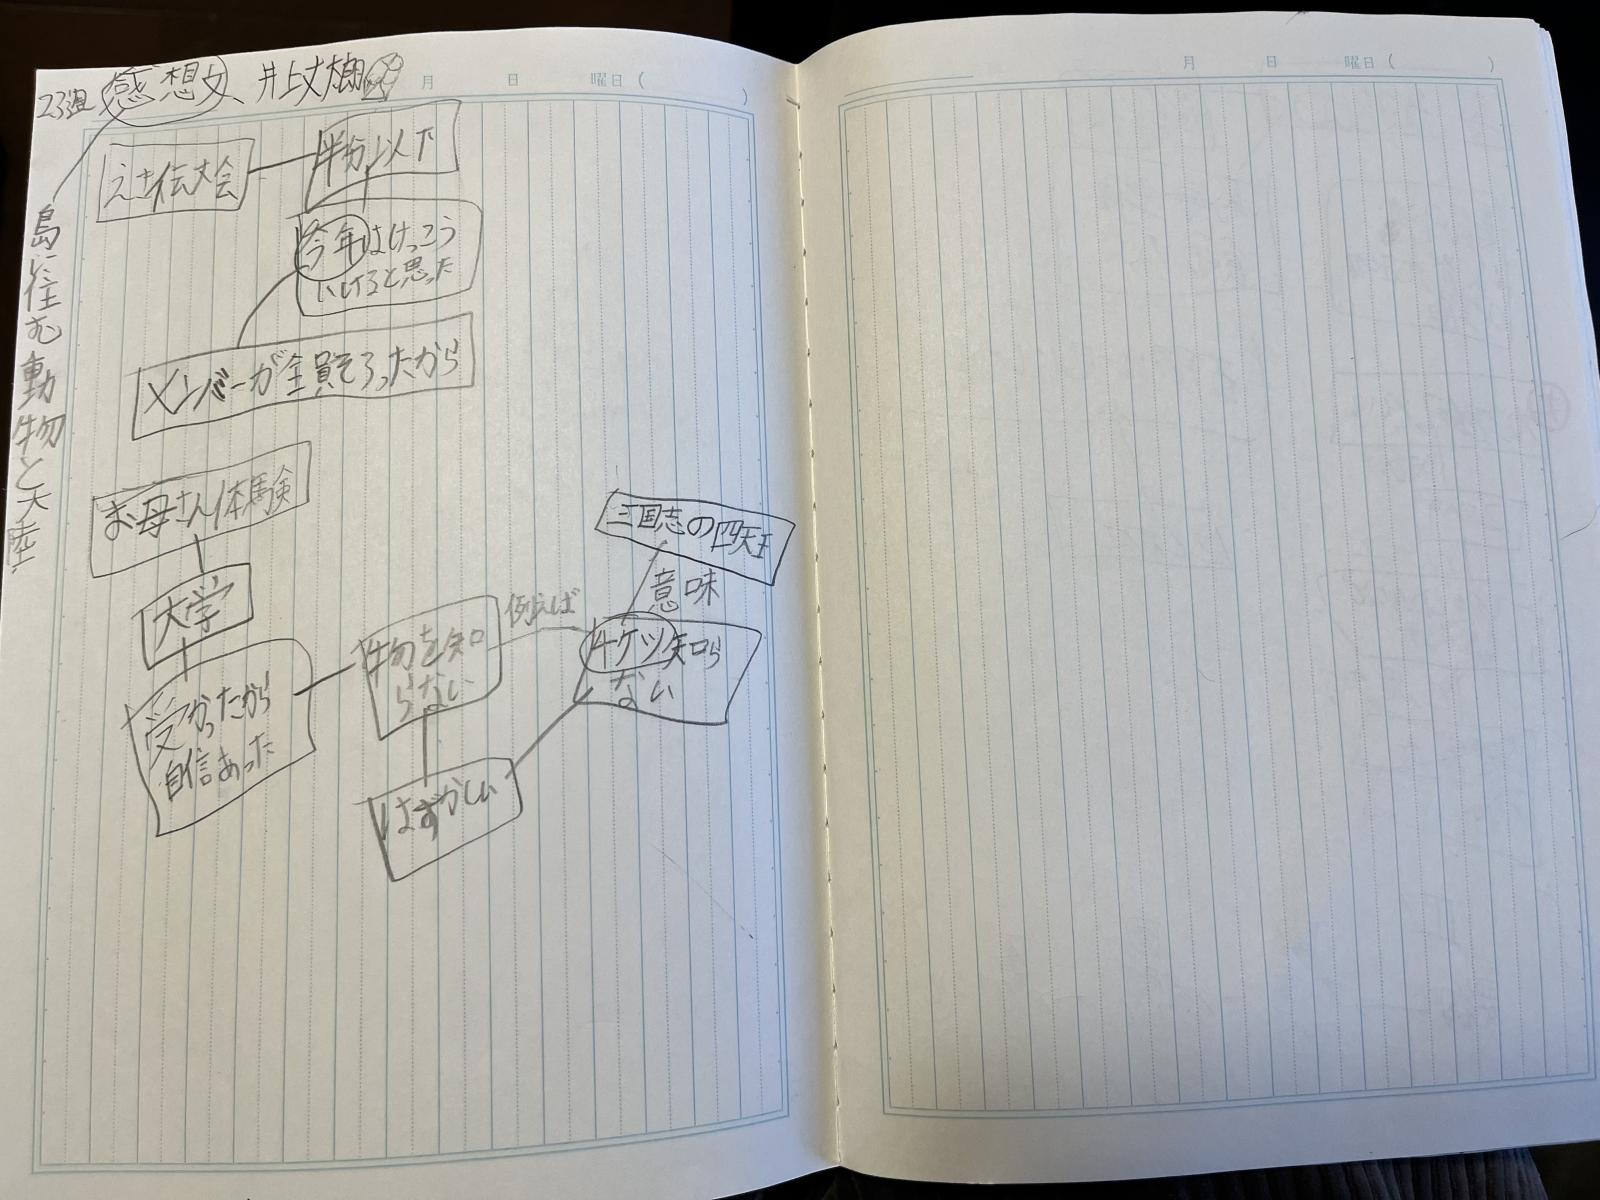 23週 感想文 井上丈太朗
月 日 曜日( )
島に住む動物と大陸
えき伝大会
半分以下
今年はけっこう
いけると思った
メンバーが全員そろったから
お母さん体験
大学
受かったから
自信あった
物を知
らない
例えば
意味
三国志の四天王
知ら
ない
はずかしい
月 日 曜日( )